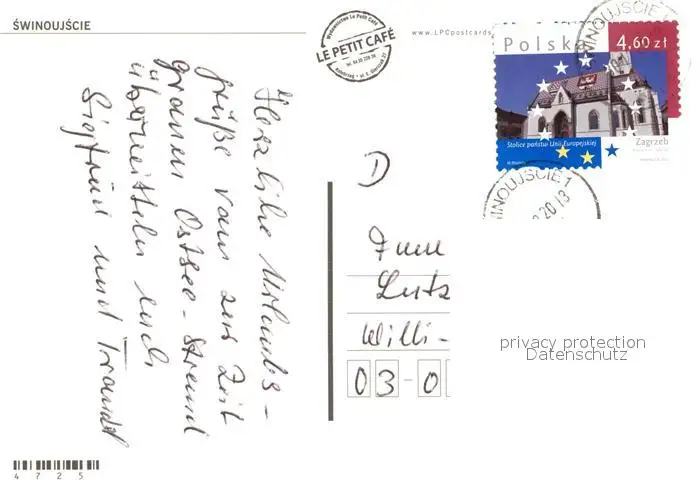 ŚWINOUJŚCIE
Wydawnictwo Le Petit Café
LE PETIT CAFÉ
www.LPCpostcards
Polska
4,60 zł
Stolice państw Unii Europejskiej
Zagrzeb
ŚWINOUJŚCIE 1
WINOUJŚCIE 1
20 13
Herzliche Urlaubs-
grüße vom zur Zeit
grauen Ostsee-Strand
übermitteln euch
Sigfried und Traudel
D
Lutz
Willi-
03-0
privacy protection
Datenschutz
4725